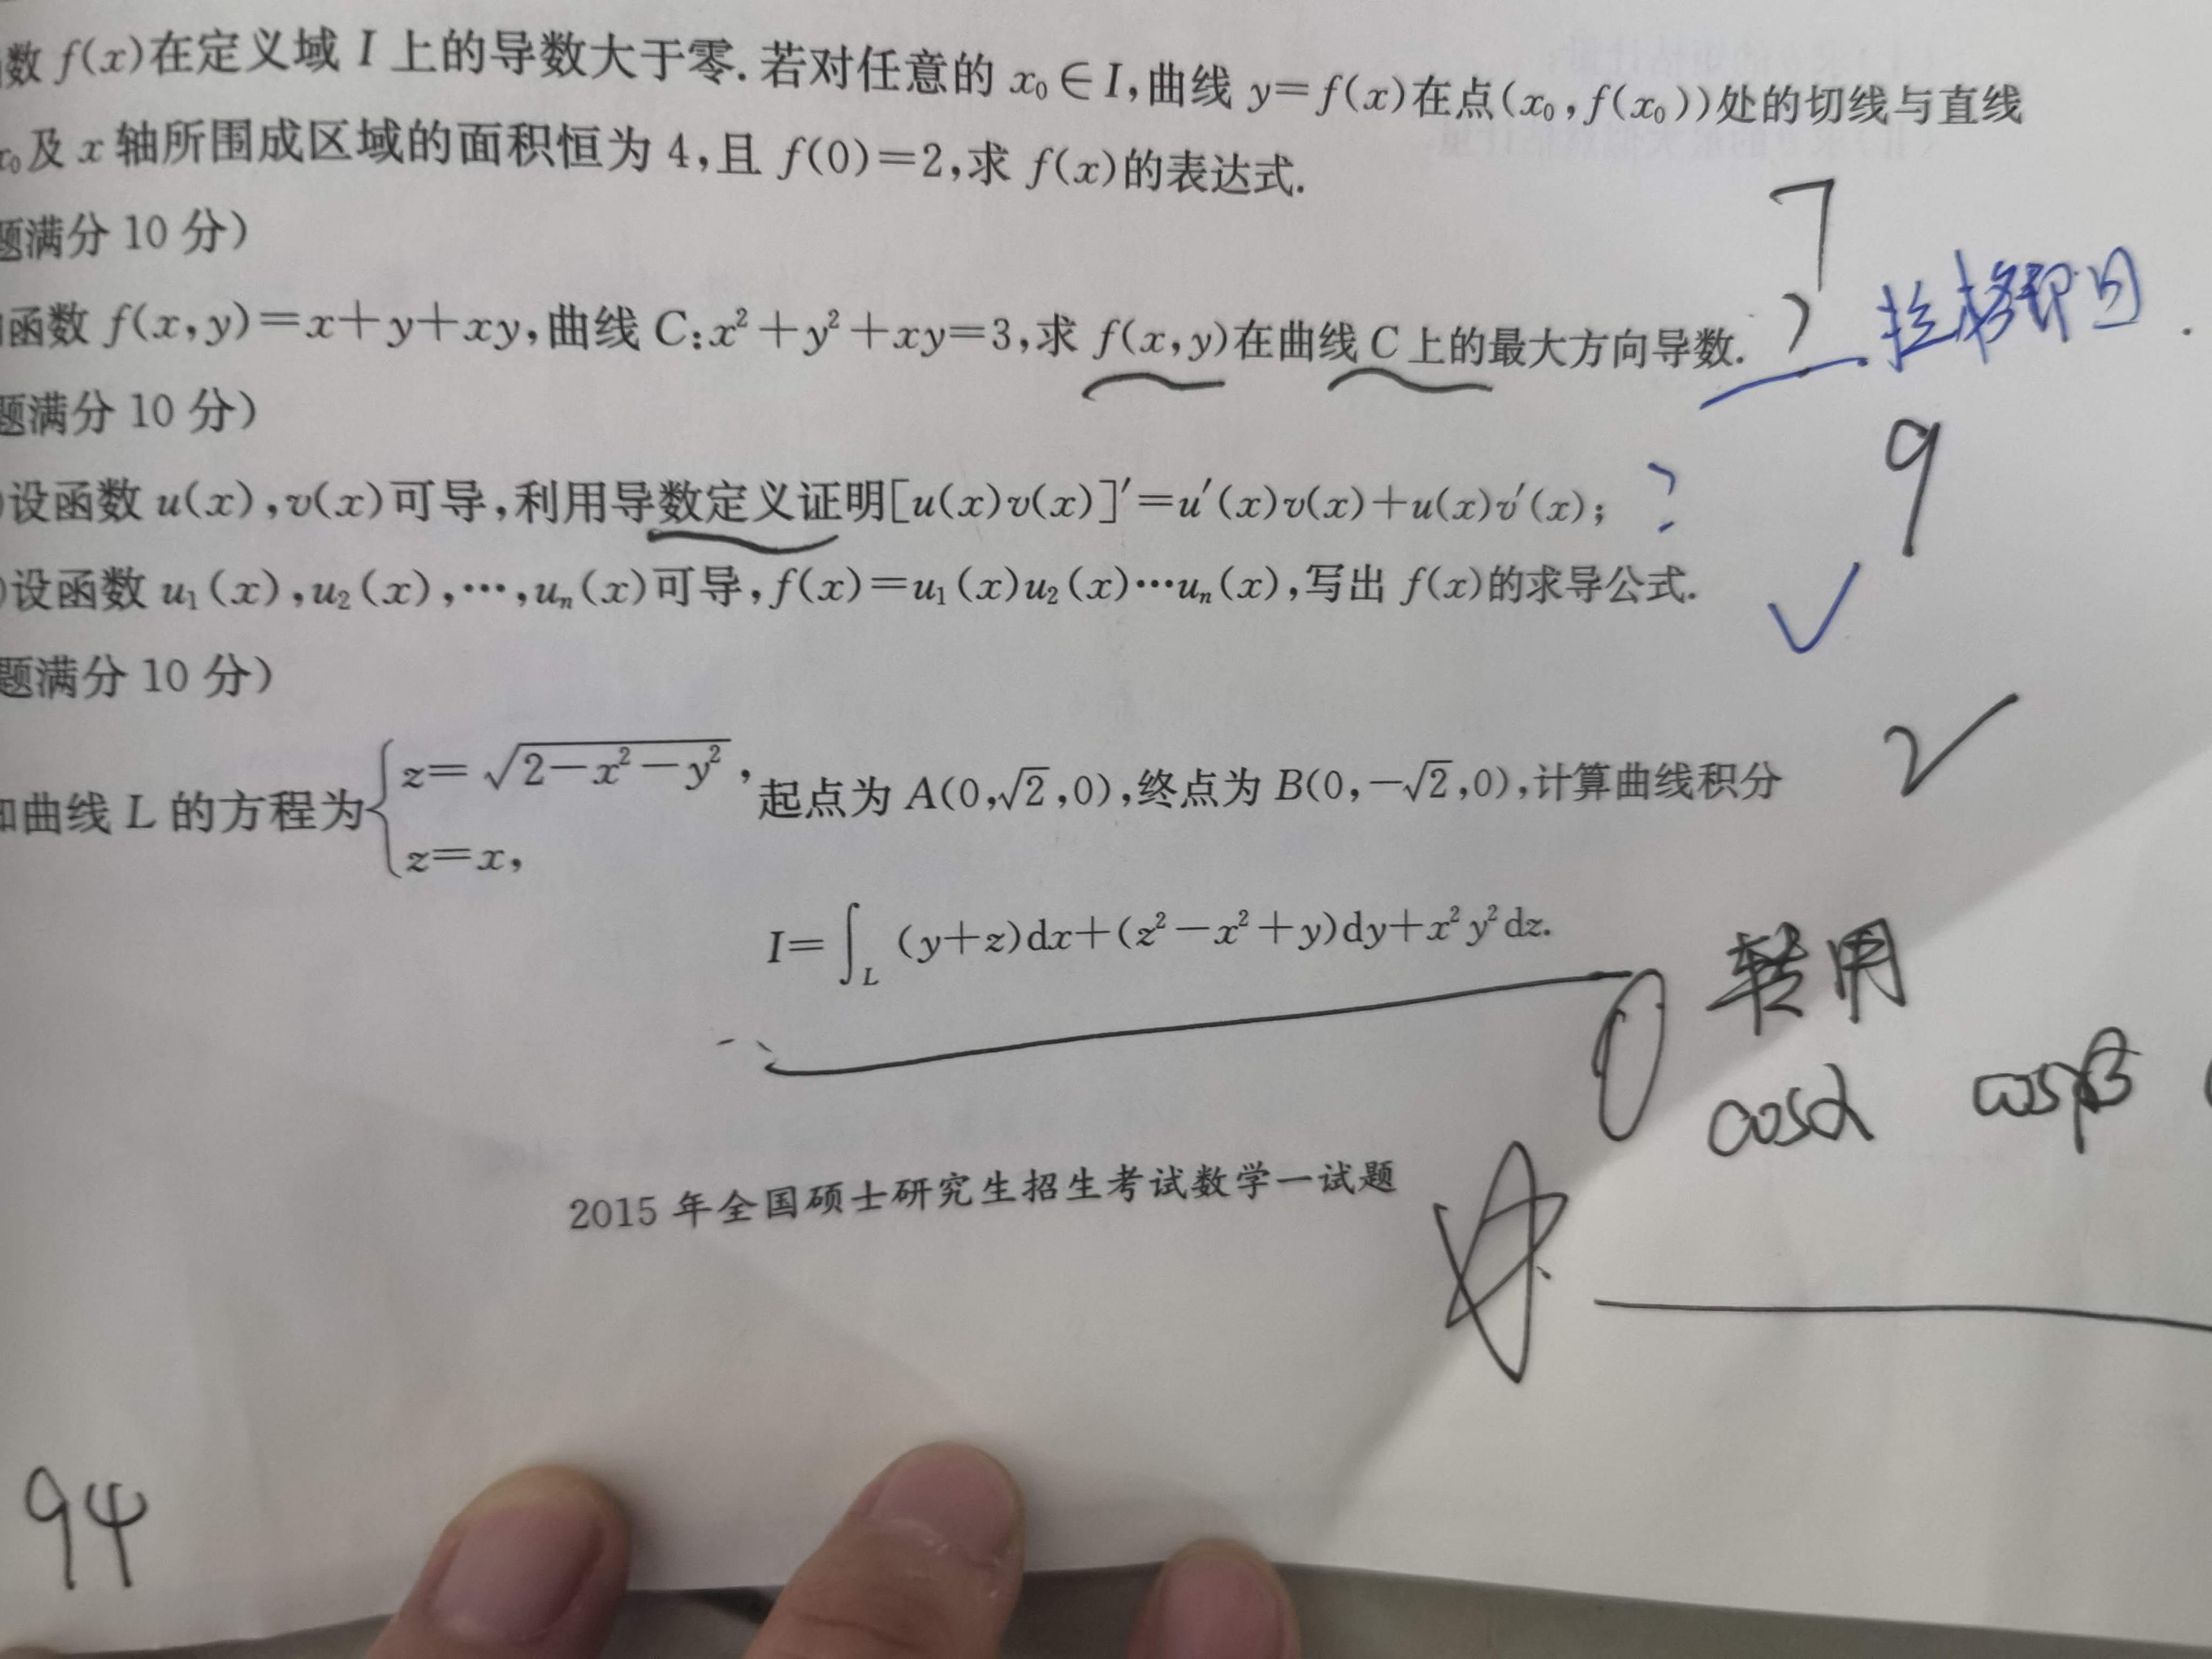 数 f(x)在定义域 I 上的导数大于零.若对任意的 x₀∈I,曲线 y=f(x)在点(x₀,f(x₀))处的切线与直线
x₀及 x 轴所围成区域的面积恒为 4,且 f(0)=2,求 f(x)的表达式.
7
题满分 10 分)
函数 f(x,y)=x+y+xy,曲线 C:x²+y²+xy=3,求 f(x,y)在曲线 C 上的最大方向导数.
? 拉格郎日.
题满分 10 分)
9
)设函数 u(x),v(x)可导,利用导数定义证明[u(x)v(x)]′=u′(x)v(x)+u(x)v′(x);
?
)设函数 u₁(x),u₂(x),⋯,uₙ(x)可导,f(x)=u₁(x)u₂(x)⋯uₙ(x),写出 f(x)的求导公式.
✓
题满分 10 分)
曲线 L 的方程为{z=√(2−x²−y²),起点为 A(0,√2,0),终点为 B(0,−√2,0),计算曲线积分
✓
z=x,
I=∫_L (y+z)dx+(z²−x²+y)dy+x²y²dz.
0 转用
cosα cosβ
2015 年全国硕士研究生招生考试数学一试题
94